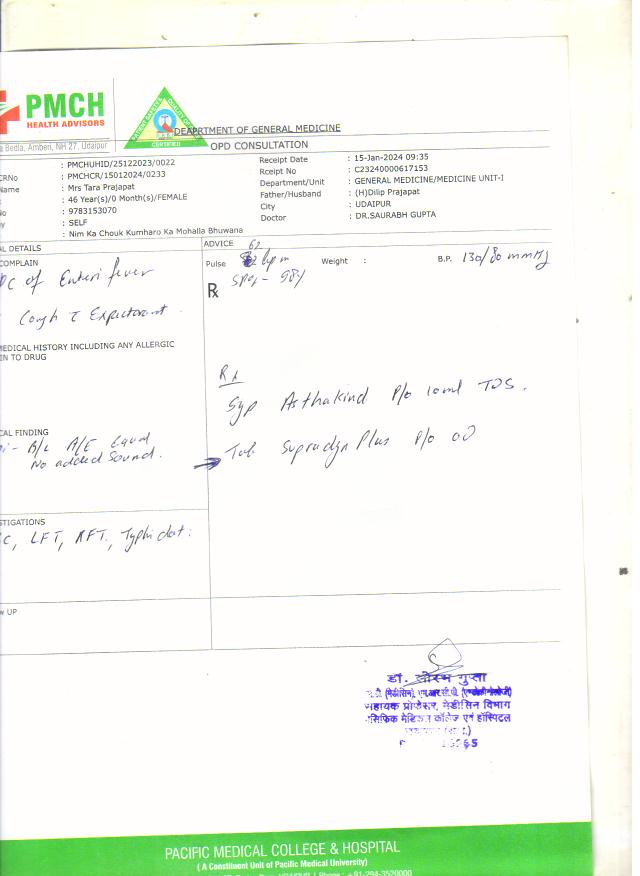 PMCH
HEALTH ADVISORS
Bedla, Amberi, NH 27, Udaipur
CERTIFIED
DEAPRTMENT OF GENERAL MEDICINE
OPD CONSULTATION
: PMCHUHID/25122023/0022
CRNo : PMCHCR/15012024/0233
Name : Mrs Tara Prajapat
: 46 Year(s)/0 Month(s)/FEMALE
No : 9783153070
By : SELF
: Nim Ka Chouk Kumharo Ka Mohalla Bhuwana
Receipt Date : 15-Jan-2024 09:35
Rceipt No : C23240000617153
Department/Unit : GENERAL MEDICINE/MEDICINE UNIT-I
Father/Husband : (H)Dilip Prajapat
City : UDAIPUR
Doctor : DR.SAURABH GUPTA
AL DETAILS
COMPLAIN
of Enteri fever
Cough c Expectorant
MEDICAL HISTORY INCLUDING ANY ALLERGIC
IN TO DRUG
CAL FINDING
B/L A/E Equal
No added Sound.
STIGATIONS
C, LFT, RFT, Typhidot
W UP
ADVICE 62
Pulse bpm Weight : B.P. 130/80 mmHg
SPO2 - 98%
Rx
Rx
Syp Asthakind P/o 10ml TDS.
Tab Supradyn Plus P/o OD
डॉ. सौरभ गुप्ता
सहायक प्रोफेसर, मेडीसिन विभाग
पेसिफिक मेडिकल कॉलेज एवं हॉस्पिटल
PACIFIC MEDICAL COLLEGE & HOSPITAL
( A Constituent Unit of Pacific Medical University)
Phone : +91-294-3520000